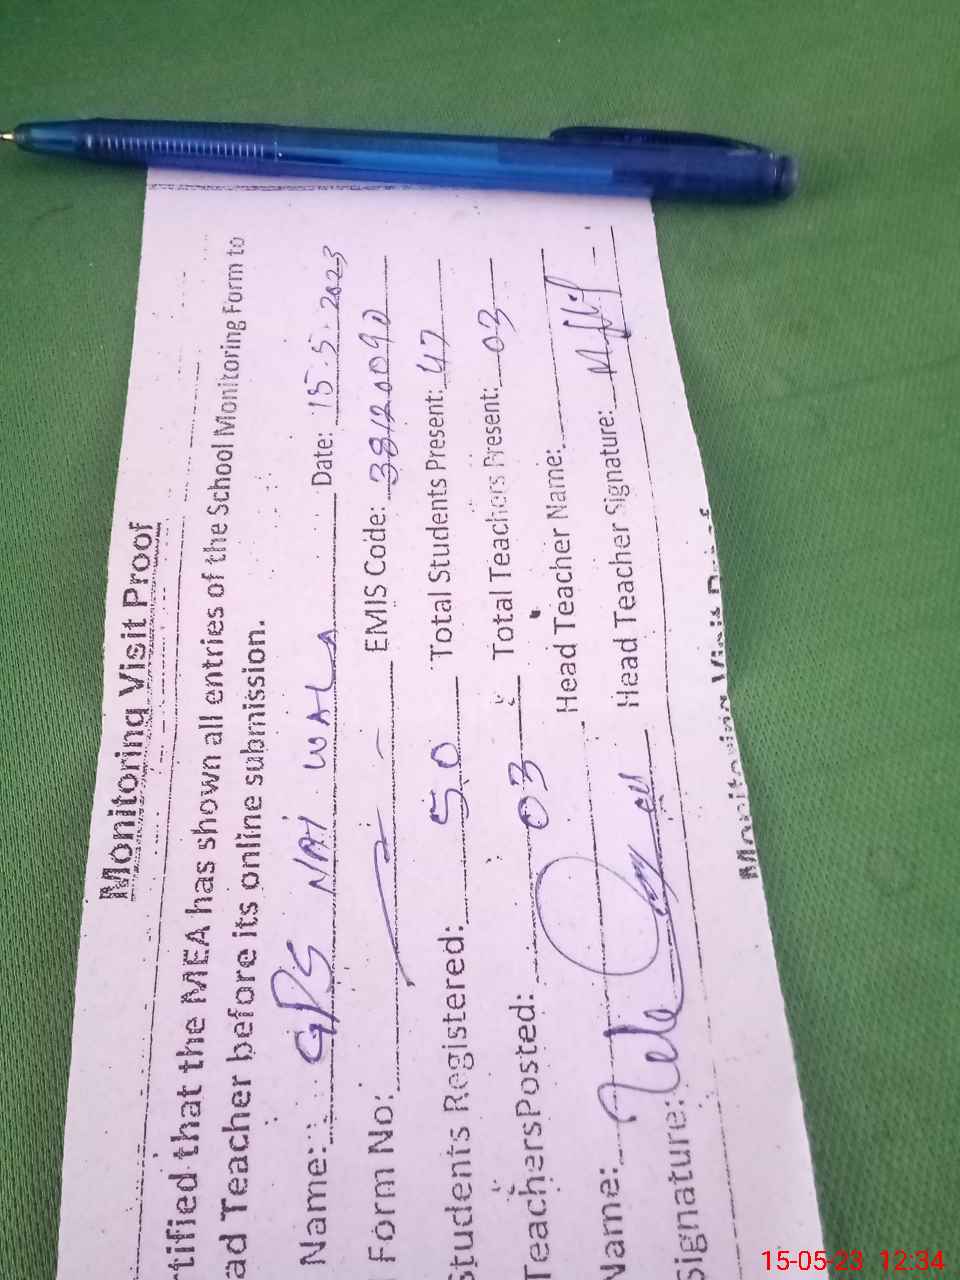 Monitoring Visit Proof
rtified that the MEA has shown all entries of the School Monitoring Form to
ad Teacher before its online submission.
Name: GPS NAI WALA Date: 15.5.2023
Form No: EMIS Code: 38120090
Students Registered: 50 Total Students Present: 47
Teachers Posted: 03 Total Teachers Present: 03
Name: Head Teacher Name:
Signature: Head Teacher Signature:
Monitoring Visit Proof
15-05-23 12:34